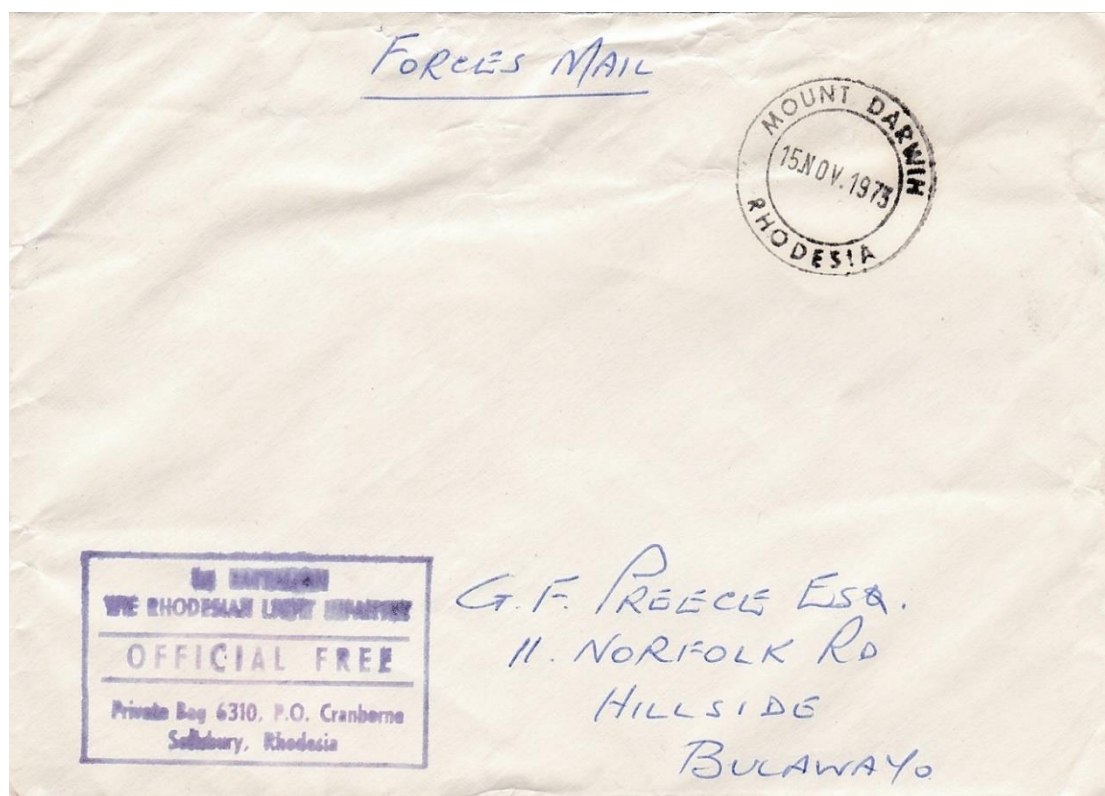 FORCES MAIL
MOUNT DARWIN
15.NOV.1973
RHODESIA
1st BATTALION
THE RHODESIAN LIGHT INFANTRY
OFFICIAL FREE
Private Bag 6310, P.O. Cranborne
Salisbury, Rhodesia
G. F. PREECE ESQ.
11. NORFOLK RD
HILLSIDE
BULAWAYO